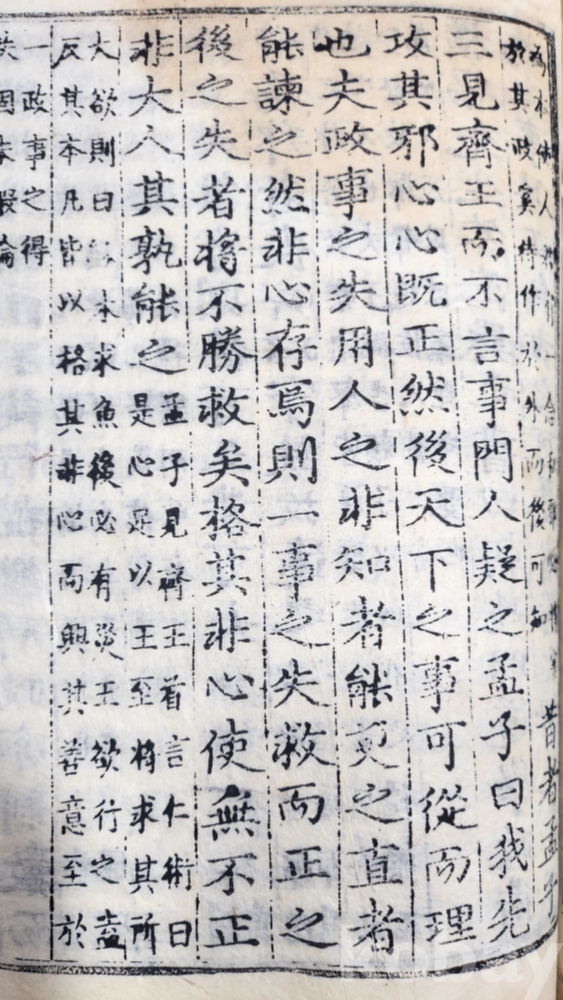 昔者孟子
三見齊王而不言事門人疑之孟子曰我先
攻其邪心心既正然後天下之事可從而理
也夫政事之失用人之非知者能更之直者
能諫之然非心存焉則一事之失救而正之
後之失者將不勝救矣格其非心使無不正
非大人其孰能之
孟子見齊王首言仁術曰
是心足以王至將求其所
大欲則曰木求魚後必有災王欲行之盍
反其本凡皆以格其非心而興其善意至於
一政事之得